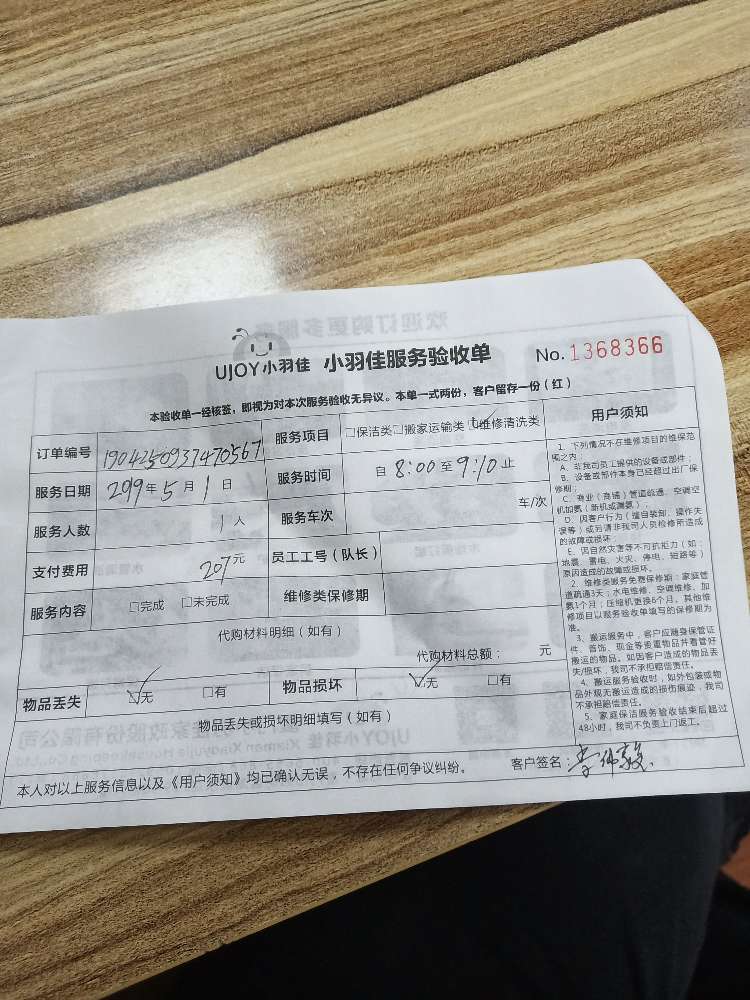 UJOY小羽佳 小羽佳服务验收单 No. 1368366
本验收单一经核签，即视为对本次服务验收无异议。本单一式两份，客户留存一份（红）
订单编号 1904250937470567 服务项目 □保洁类□搬家运输类☑维修清洗类
服务日期 299年5月1日 服务时间 自8:00至9:10止
服务人数 1人 服务车次 车/次
支付费用 207元 员工工号（队长）
服务内容 □完成 □未完成 维修类保修期
代购材料明细（如有）
代购材料总额： 元
物品丢失 ☑无 □有 物品损坏 ☑无 □有
物品丢失或损坏明细填写（如有）
本人对以上服务信息以及《用户须知》均已确认无误，不存在任何争议纠纷。 客户签名：
用户须知
1、下列情况不在维修项目的维保范
围之内：
A、非我司员工提供的设备或部件；
B、设备或部件本身已经超过出厂保
修期；
C、商业（商铺）管道疏通、空调空
机加氨（新机或漏氨）；
D、因客户行为（擅自装卸、操作失
误等）或另请非我司人员检修所造成
的故障或损坏
E、因自然灾害等不可抗拒力（如：
地震、雷电、火灾、停电、短路等）
原因造成的故障或损坏。
2、维修类服务免费保修期：家庭管
道疏通3天；水电维修、空调维修、加
氨1个月；压缩机更换6个月。其他维
修项目以服务验收单填写的保修期为
准。
3、搬运服务中，客户应随身保管证
件、首饰、现金等贵重物品并看管好
搬运的物品。如因客户造成的物品丢
失/损坏，我司不承担赔偿责任。
4、搬运服务验收时，如外包装或物
品外观无搬运造成的损伤痕迹，我司
不承担赔偿责任。
5、家庭保洁服务验收结束后超过
48小时，我司不负责上门返工。